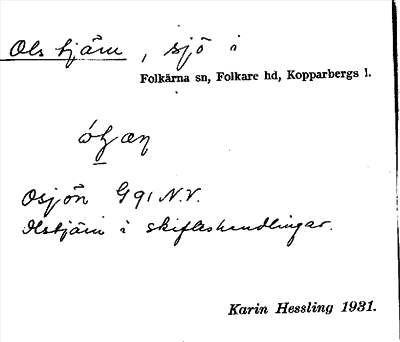 Ols tjärn, sjö i
Folkärna sn, Folkare hd, Kopparbergs l.
Osjön G 91 N.V.
Olstjärn i skifteshandlingar.
Karin Hessling 1931.